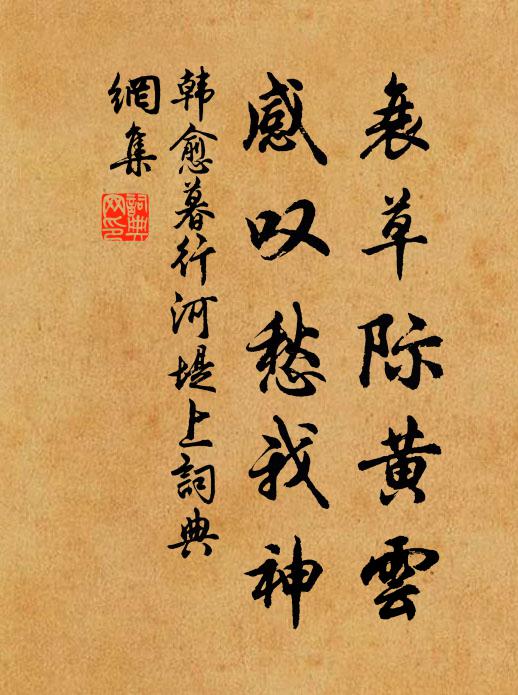 衰草际黄雲
感叹愁我神
韩愈暮行河堤上詞典
網集
詞典
网印